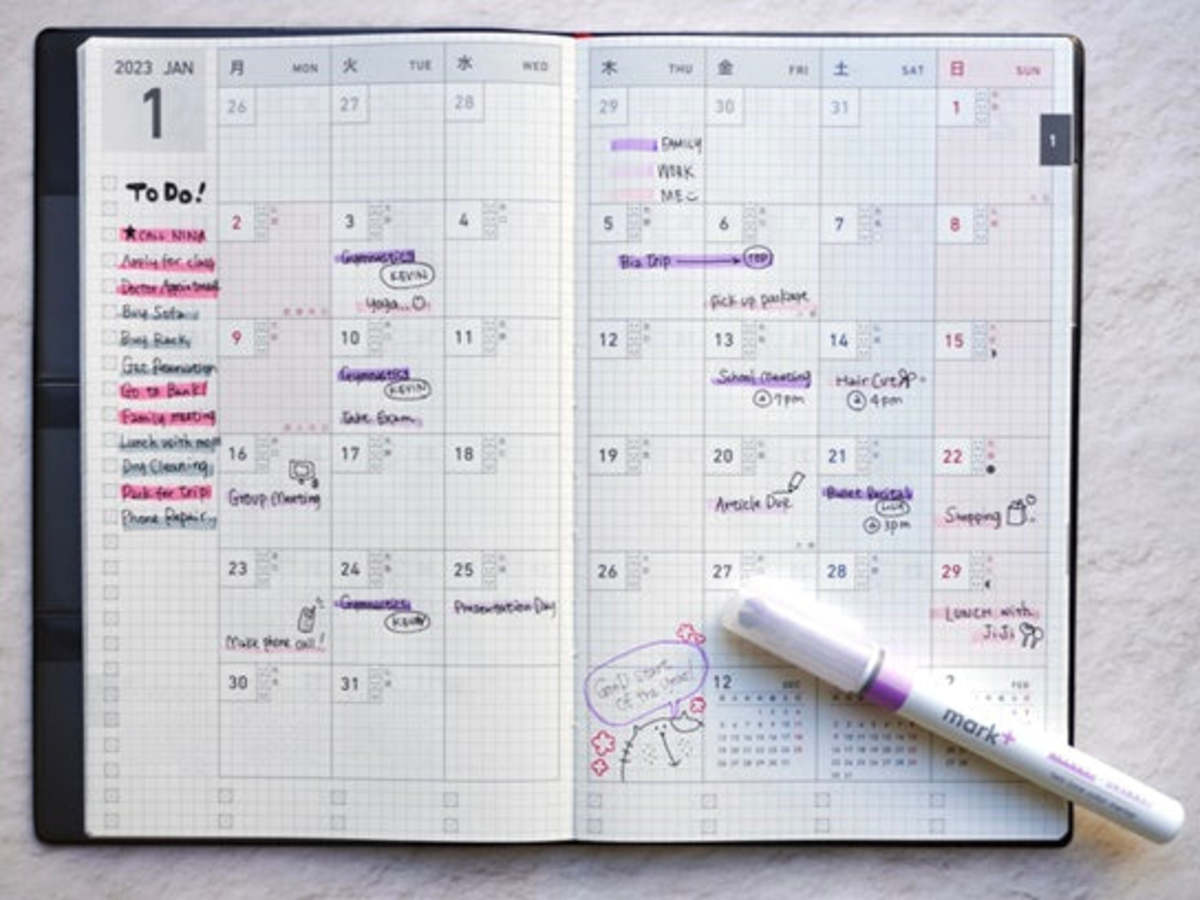 2023 JAN
1
月 MON 火 TUE 水 WED 木 THU 金 FRI 土 SAT 日 SUN
26 27 28 29 30 31 1
FAMILY
WORK
ME
1
To Do!
★CALL NINA
Apply for class
Doctor Appointment
Buy Sofa
Buy Rack
Get Reservation
Go to Bank!
Family meeting
Lunch with mom
Dry Cleaning
Pack for Trip!
Phone Repair
2 3 4 5 6 7 8
Gymnastics
KEVIN
Yoga..
Biz Trip
TED
Pick up package
9 10 11 12 13 14 15
Gymnastics
KEVIN
Take Exam
School Meeting
@ 7pm
Hair Cut
@ 4pm
16 17 18 19 20 21 22
Group Meeting
Article Due
Ballet Recital
@ 3pm
Shopping
23 24 25 26 27 28 29
Make phone call!
Gymnastics
KEVIN
Presentation Day
LUNCH with
JiJi
30 31
Good start
of the Year!
12 DEC
FEB
mark+